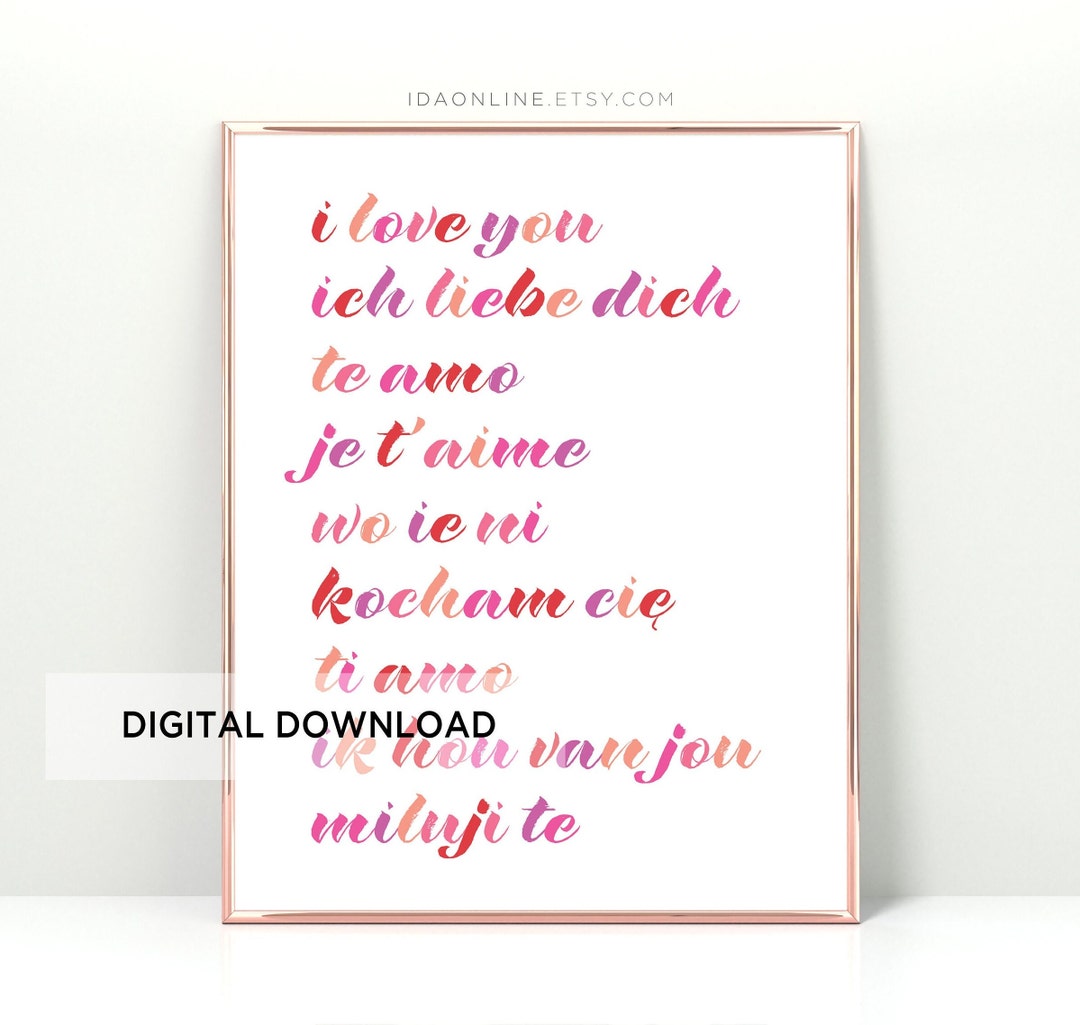 IDAONLINE.ETSY.COM
i love you
ich liebe dich
te amo
je t'aime
wo ie ni
kocham cię
ti amo
DIGITAL DOWNLOAD
ik hou van jou
miluji te